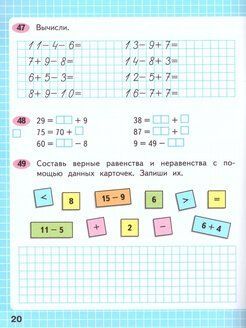 47 Вычисли.
11-4-6= 13-9+7=
7+9-8= 14-8+3=
6+5-3= 12-5+7=
8+9-10= 16-7+7=
48 29 = □ + 9 38 = □ + □
75 = 70 + □ 87 = □ - □
60 = □ - 8 9 = 49 - □
49 Составь верные равенства и неравенства с по-
мощью данных карточек. Запиши их.
< 8 15 - 9 6 > =
11 - 5 + 2 - 6 + 4
20